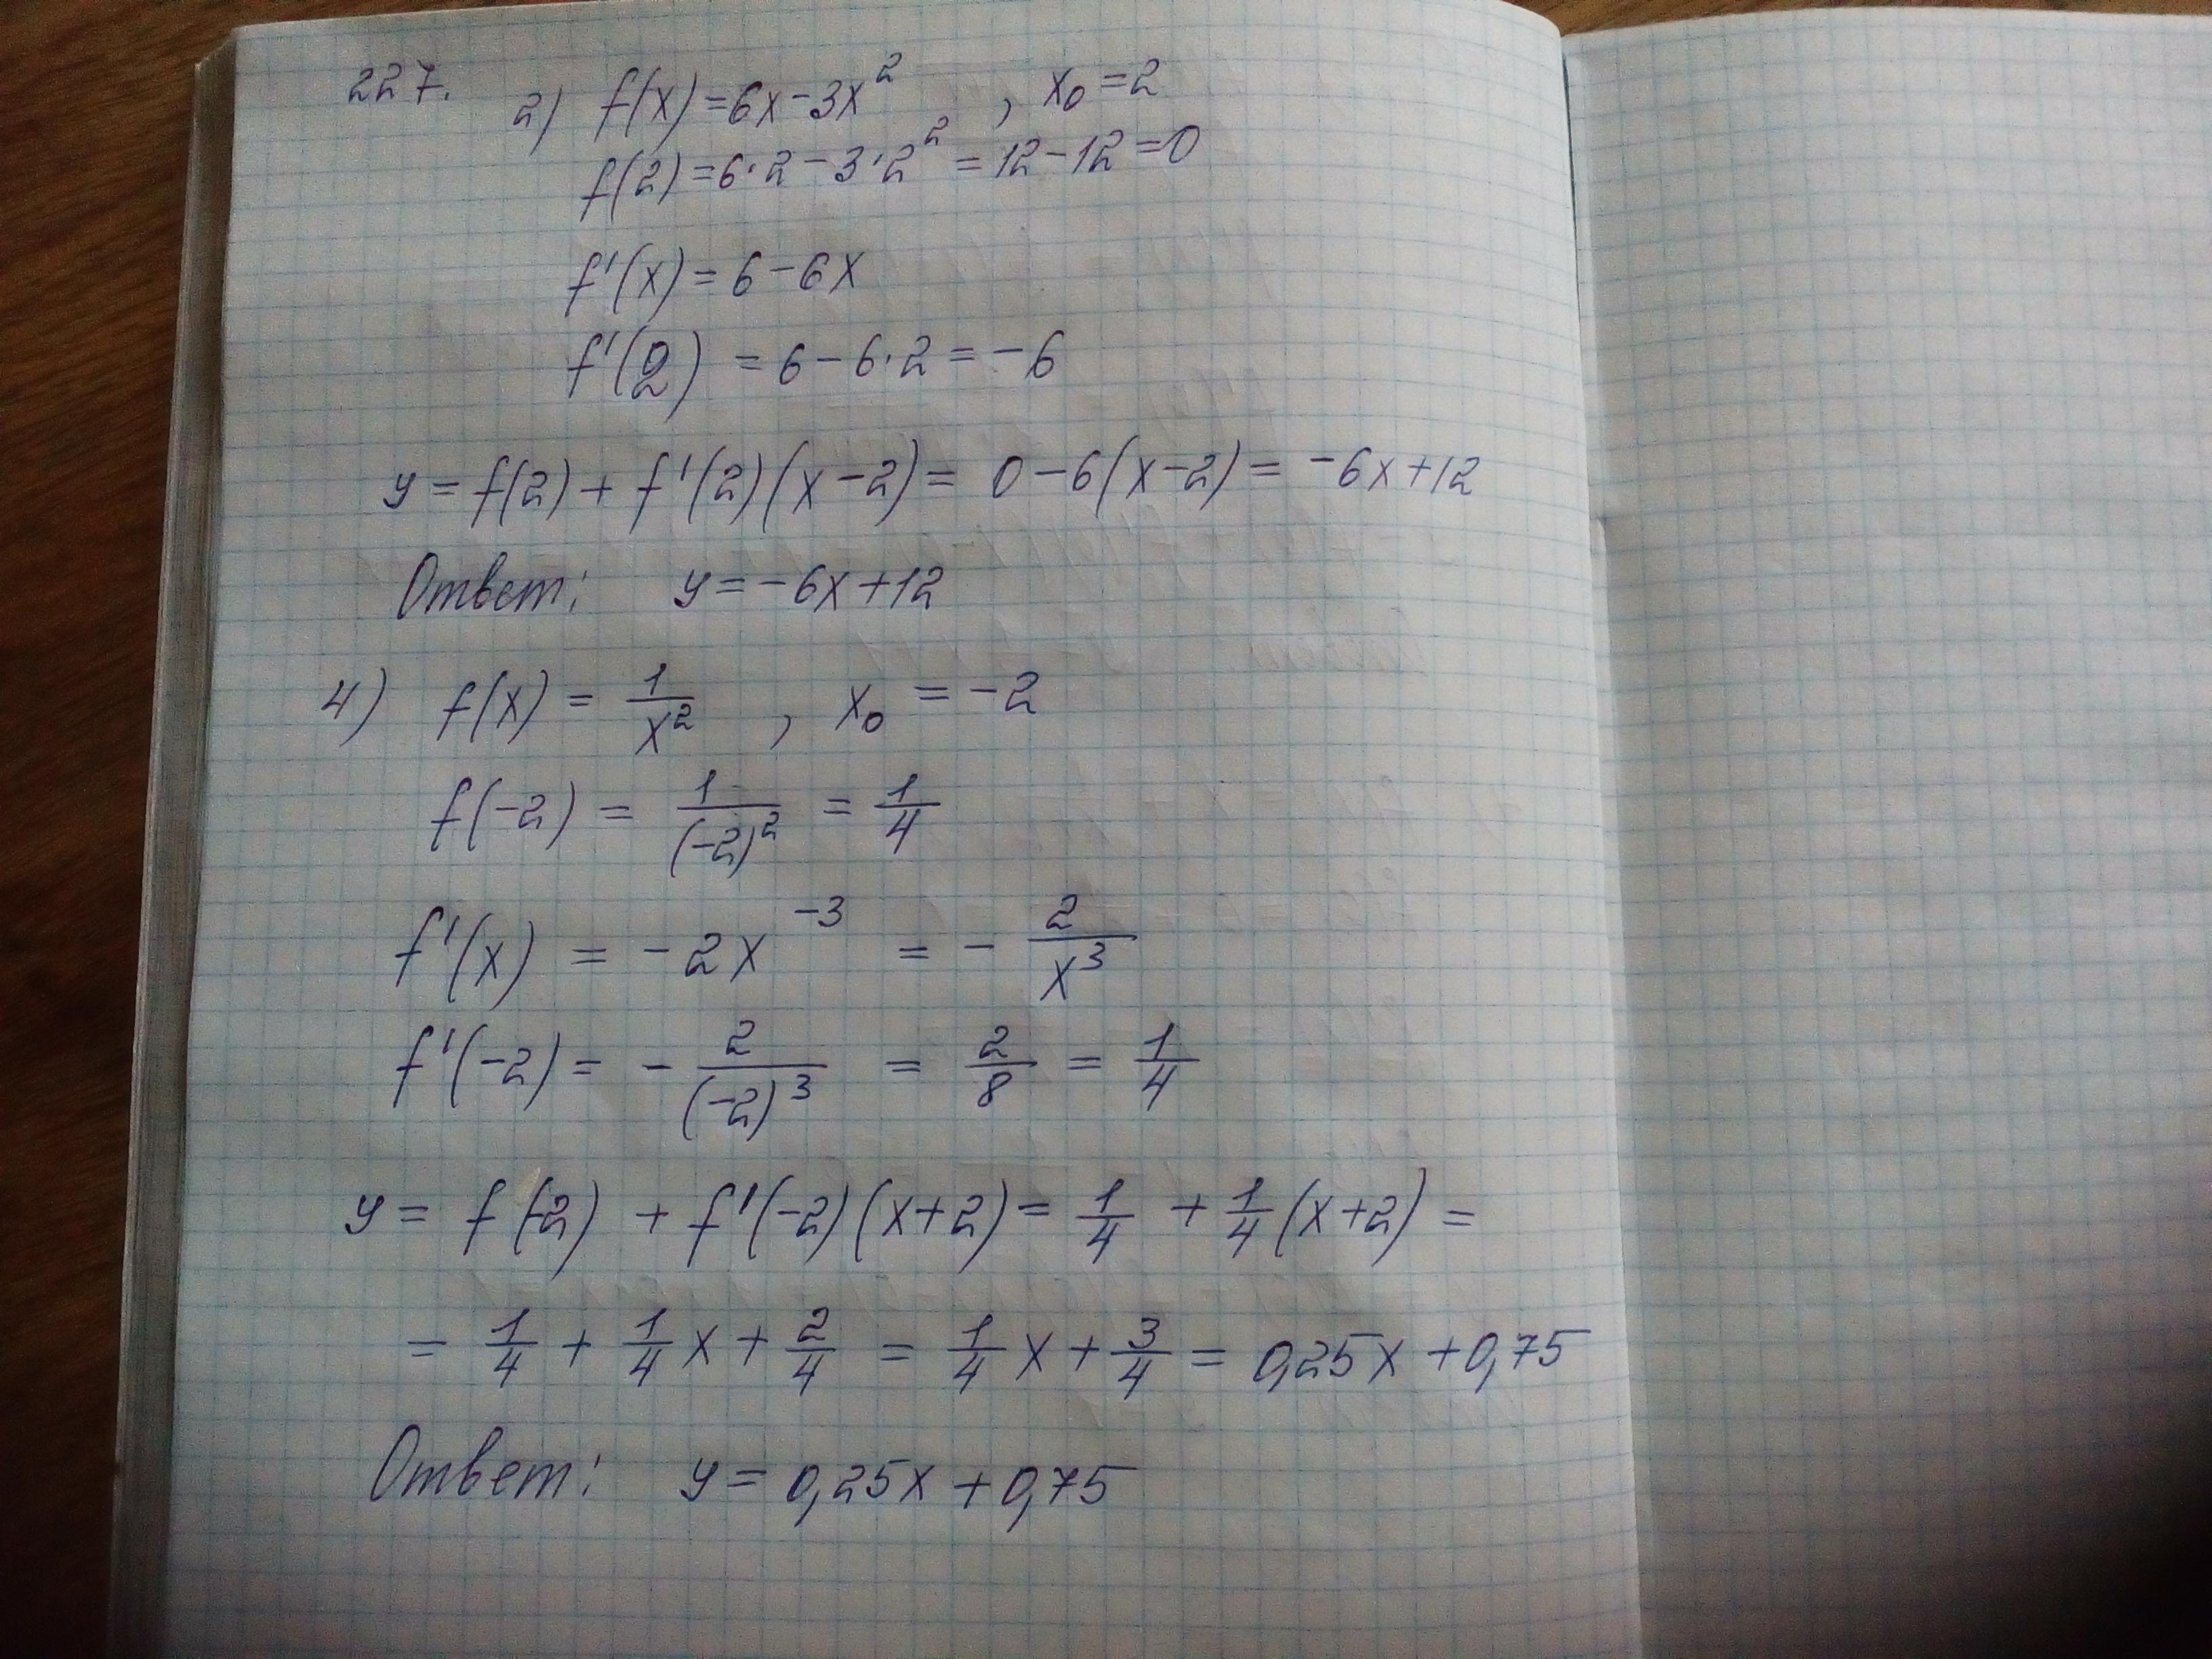 227. 2) f(x)=6x-3x², x₀=2
f(2)=6·2-3·2²=12-12=0
f'(x)=6-6x
f'(2)=6-6·2=-6
y=f(2)+f'(2)(x-2)=0-6(x-2)=-6x+12
Ответ: y=-6x+12
4) f(x)=1/x², x₀=-2
f(-2)=1/(-2)²=1/4
f'(x)=-2x⁻³=-2/x³
f'(-2)=-2/(-2)³=2/8=1/4
y=f(-2)+f'(-2)(x+2)=1/4+1/4(x+2)=
=1/4+1/4x+2/4=1/4x+3/4=0,25x+0,75
Ответ: y=0,25x+0,75